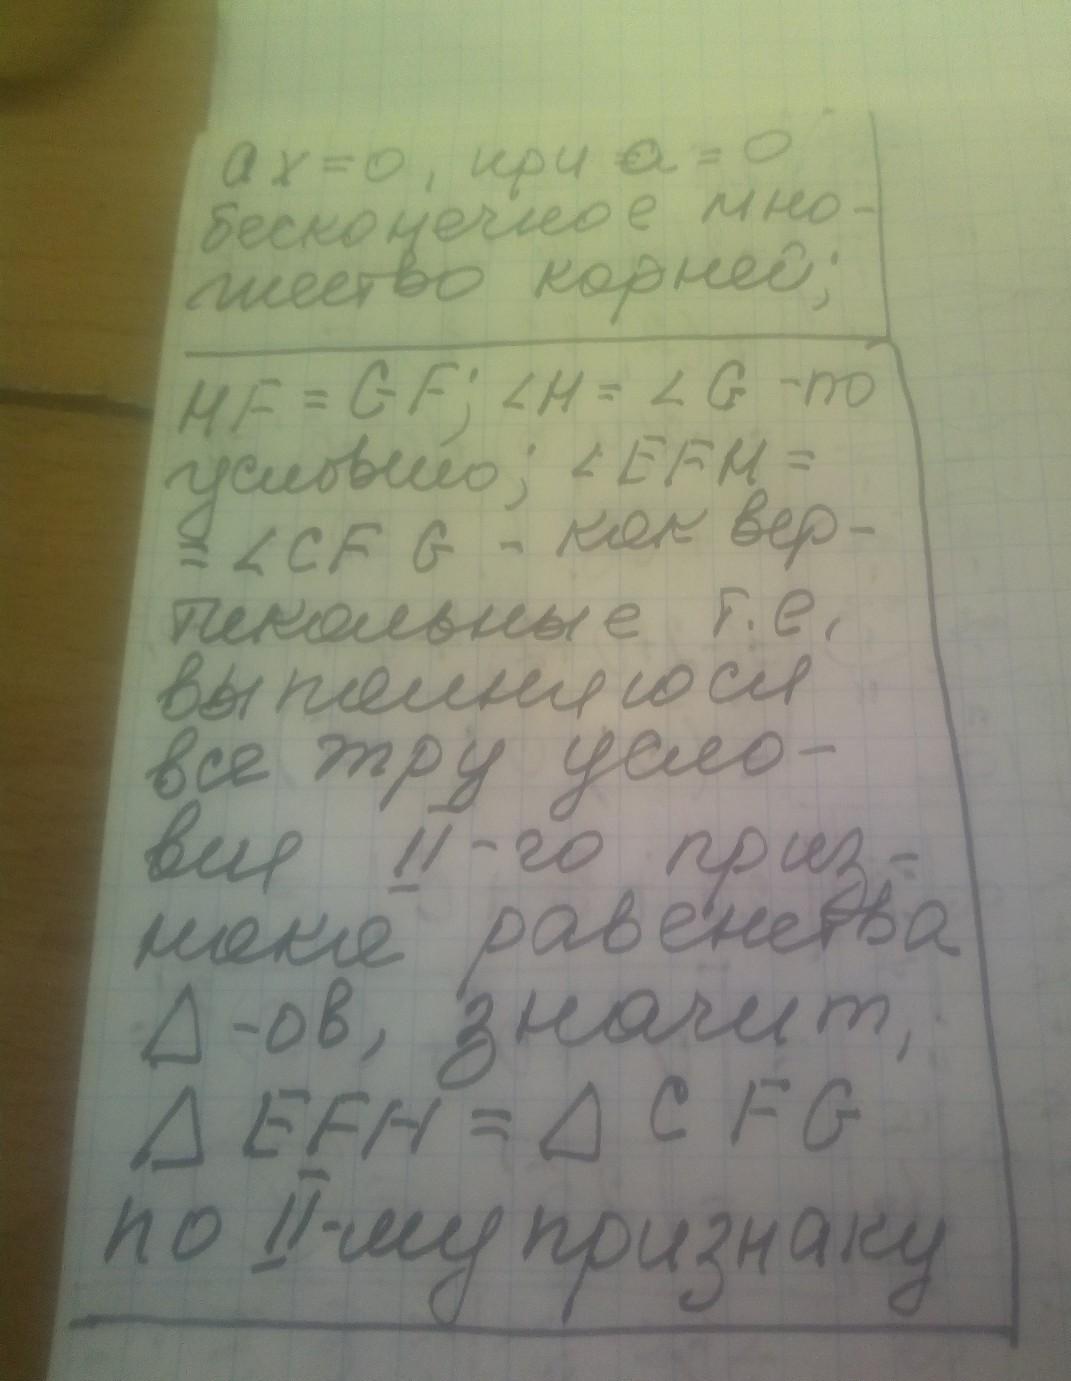 ax=0, при a=0
бесконечное мно-
жество корней;
HF=GF; ∠H=∠G -по
условию; ∠EFH=
=∠CFG - как вер-
тикальные т.е,
выполняюся
все тру усло-
вия II-го приз-
нака равенства
Δ-ов, значит,
ΔEFH=ΔCFG
по II-му признаку